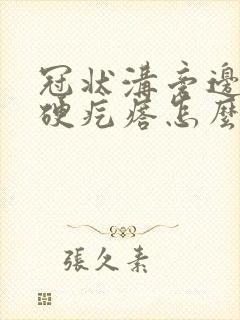 冠狀溝旁邊
硬疙瘩怎麼
張久素